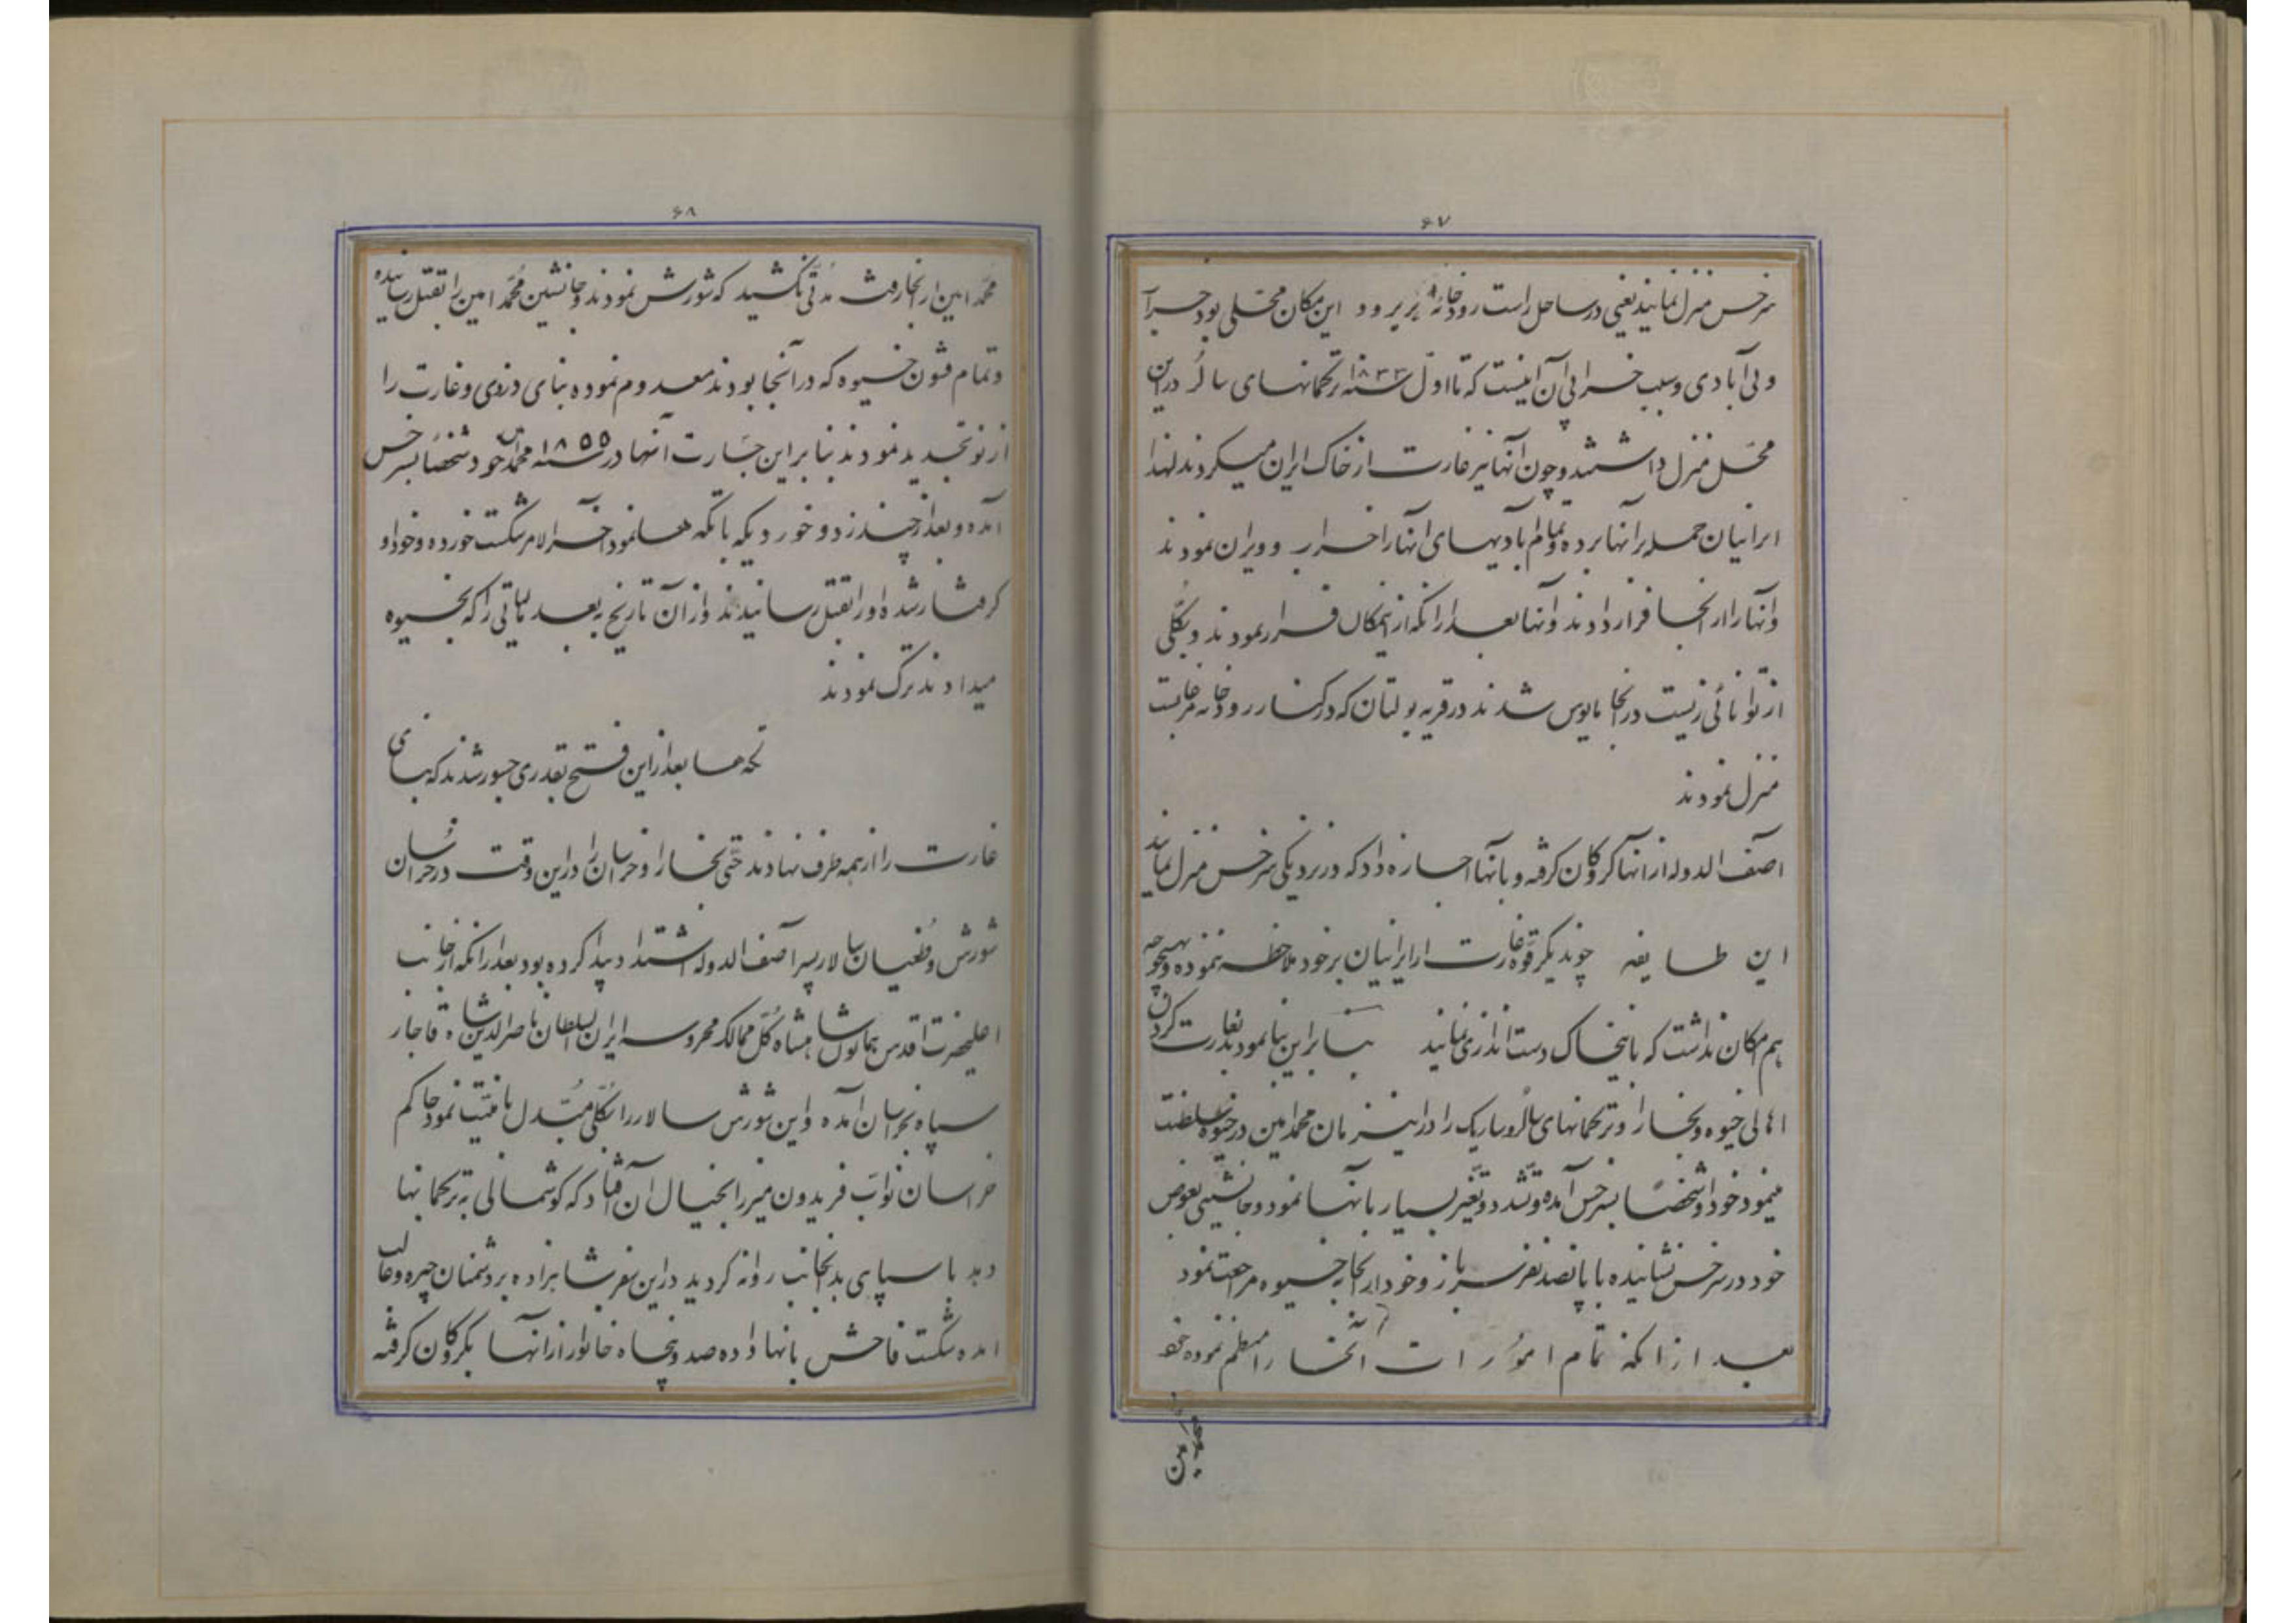 ۶۷
سرخس منزل نمایند یعنی در ساحل راست رودخانه این مکان محلی بود خراب
و بی آبادی و سبب خرابی آن اینست که تا اول سنه ۱۸۳۳ ترکمانهای سالُر در این
محل منزل داشتند و چون آنها نیز غارت از خاک ایران میکردند لهذا
ایرانیان حمله بر آنها برده و تمام آبادیهای آنها را خراب و ویران نمودند
و آنها را از آنجا فرار دادند و آنها بعد از آنکه از اینمکان فرار نمودند و بکلی
از توانائی زیست در آنجا مایوس شدند در قریه یولتان که در کنار رودخانه مرغابست
منزل نمودند
آصف الدوله از آنها گروگان گرفته و بآنها اجازه داد که در نزدیکی سرخس منزل نمایند
این طایفه چون دیگر قوه غارت از ایرانیان بر خود ملاحظه ننموده و بهیچوجه
هم امکان نداشت که باینخاک دست اندازی نمایند بنابراین بنا نمودند بغارت کردن
اهالی خیوه و بخارا و ترکمانهای سالُر و ساریک را در این زمان محمد امین در خیوه سلطنت
مینمود خود او شخصاً بسرخس آمده و تشدد و تغیر بسیار بآنها نمود و جانشینی بعوض
خود در سرخس نشانیده با پانصد نفر سرباز و خود از آنجا به خیوه مراجعت نمود
بعد از آنکه تمام امورات آنجا را منظم نموده خود
محمد امین
۶۸
محمد امین از آنجا رفت مدتی نکشید که شورش نمودند و جانشین محمد امین را بقتل رسانیده
و تمام قشون خیوه که در آنجا بودند معدوم نموده بنای دزدی و غارت را
از نو تجدید نمودند بنابراین جسارت آنها در سنه ۱۸۵۵ محمد امین خود شخصاً بسرخس
آمده و بعد از چند زد و خوردیکه با تکه ها نمود آخرالامر شکست خورده و خود او
گرفتار شده او را بقتل رسانیدند و از آن تاریخ به بعد مالیاتی را که بخیوه
میدادند ترک نمودند
تکه ها بعد از این فتح بقدری جسور شدند که بنای
غارت را از همه طرف نهادند حتی بخارا و خراسان را در این وقت در خراسان
شورش و طغیان سالار پسر آصف الدوله اشتداد پیدا کرده بود بعد از آنکه از جانب
اعلیحضرت اقدس همایون شاهنشاه کل ممالک محروسه ایران السلطان ناصرالدین شاه قاجار
سپاه بخراسان آمده و این شورش سالار را بکلی مبدل بامنیت نمود حاکم
خراسان نواب فریدون میرزا بخیال آن افتاد که گوشمالی به ترکمانها
دهد با سپاهی بدانجانب روانه گردید در این سفر شاهزاده بر دشمنان چیره و غالب
آمده شکست فاحش بآنها داده صد و پنجاه خانوار از آنها بگروگان گرفته